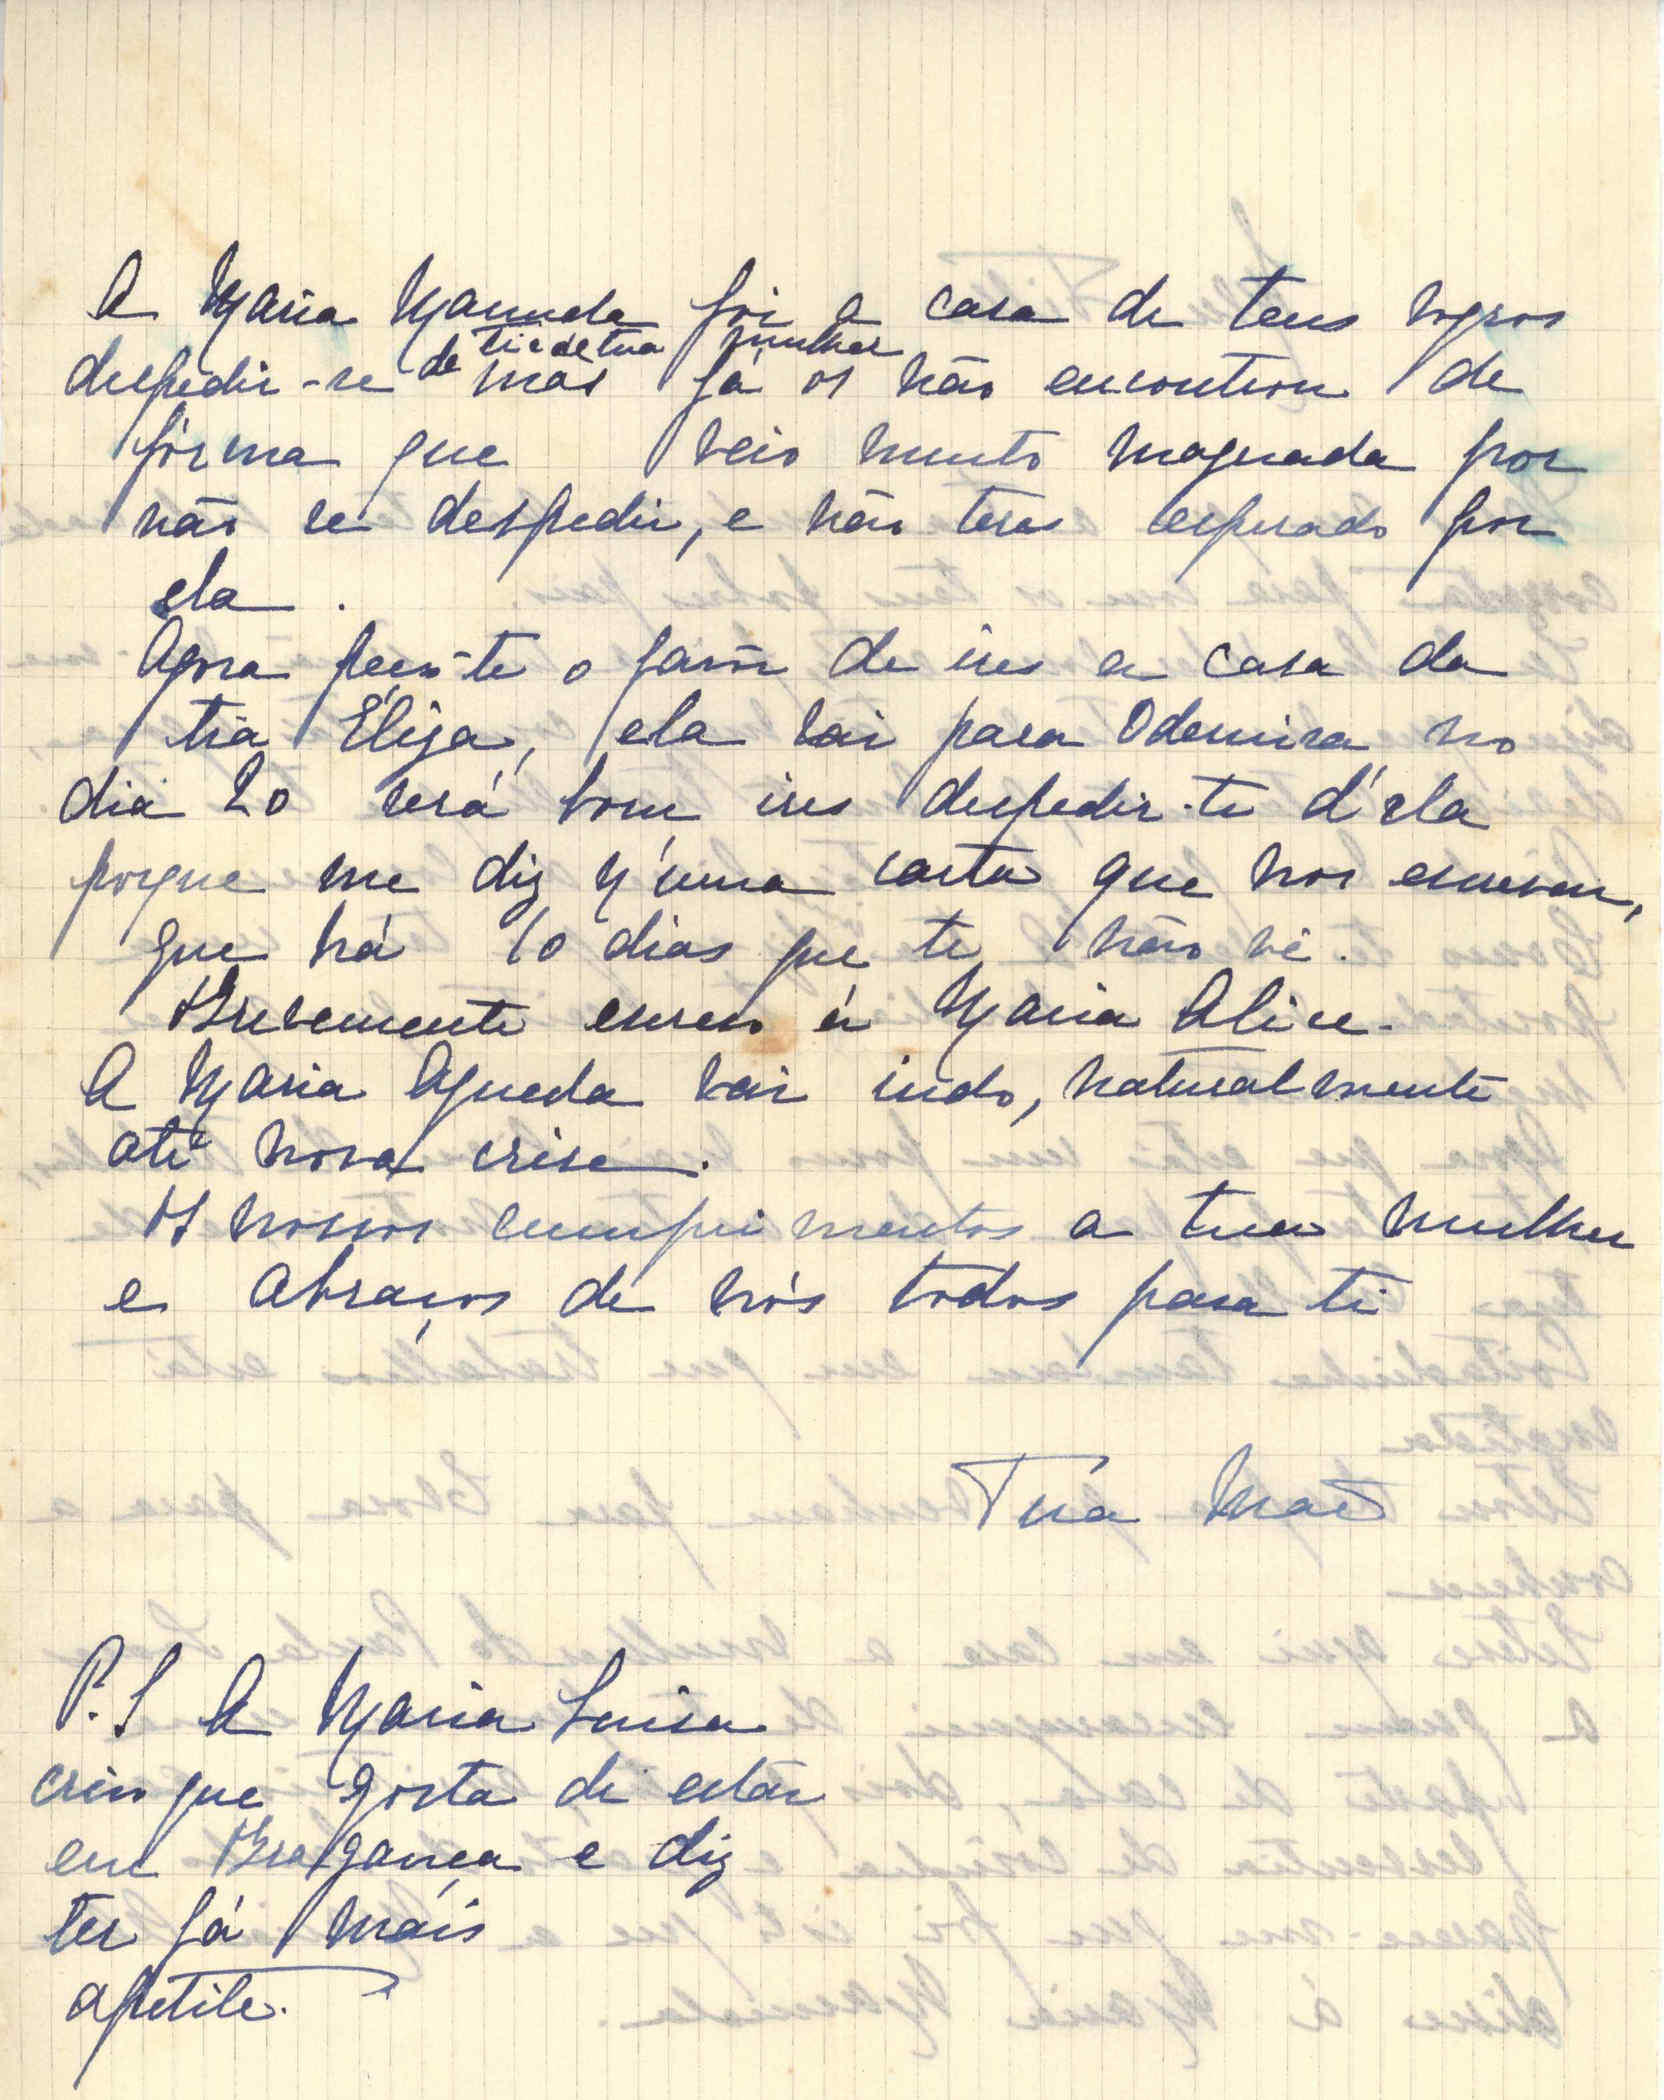 A Maria Manuela foi a casa de teus sogros
despedir-se de ti e de tua mulher mas já os não encontrou de
fórma que veio muito magoada por
não se despedir, e não teres esperado por
ela.
Agora peço-te o favôr de ires a casa da
tia Éliza, ela vai para Odemira no
dia 20 será bom ires despedir-te d'ela
porque me diz n'uma carta que nos escreveu,
que há 10 dias que te não vê.
Brevemente escrevo á Maria Alice.
A Maria Agueda vai indo, naturalmente
até nova crise.
Os nossos cumprimentos a tua mulher
e abraços de nós todos para ti
Túa Mãe
P.S A Maria Luisa
creio que gosta de estár
em Bragança e diz
ter já máis
apetite.